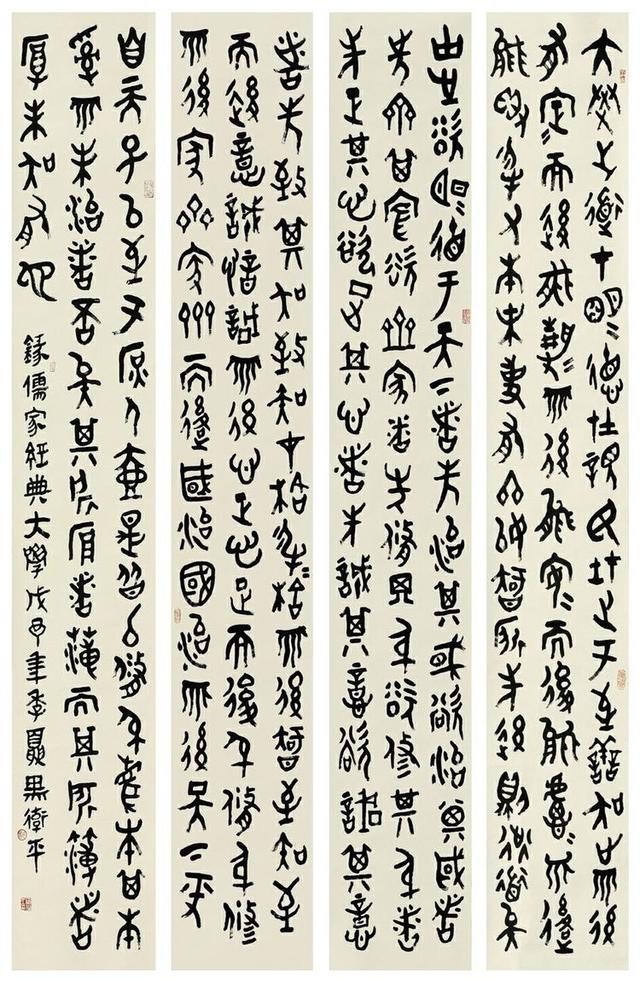 大學之道在明明德在親民在止于至善知止而后
有定定而後能靜靜而後能安安而後能慮慮而後
能得物有本末事有終始知所先後則近道矣
古之欲明明德于天下者先治其國欲治其國者
先齊其家欲齊其家者先修其身欲修其身者
先正其心欲正其心者先誠其意欲誠其意
者先致其知致知在格物物格而後知至知至
而後意誠意誠而後心正心正而後身修身修
而後家齊家齊而後國治國治而後天下平
自天子以至于庶人壹是皆以修身為本其本
亂而末治者否矣其所厚者薄而其所薄者
厚未知有也
錄儒家經典大學戊年季夏衛平